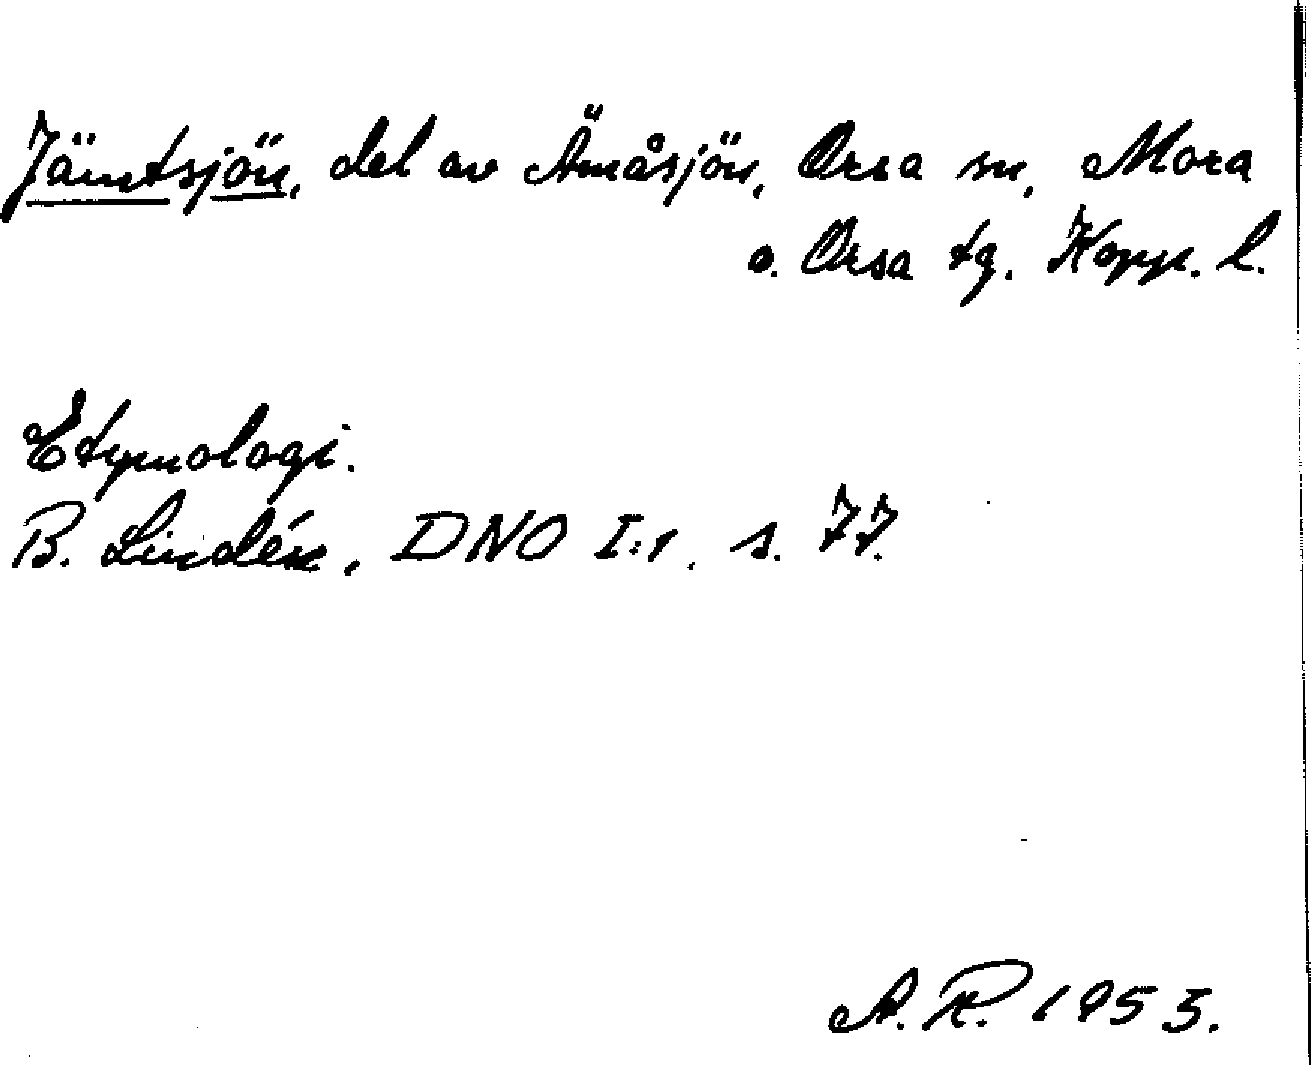 Jämtsjön, del av Ämåsjön, Orsa sn, Mora
o. Orsa tg. Kopp. l.
Etymologi.
B. Lindén, DNO I:1, s. 77.
A. R. 1955.